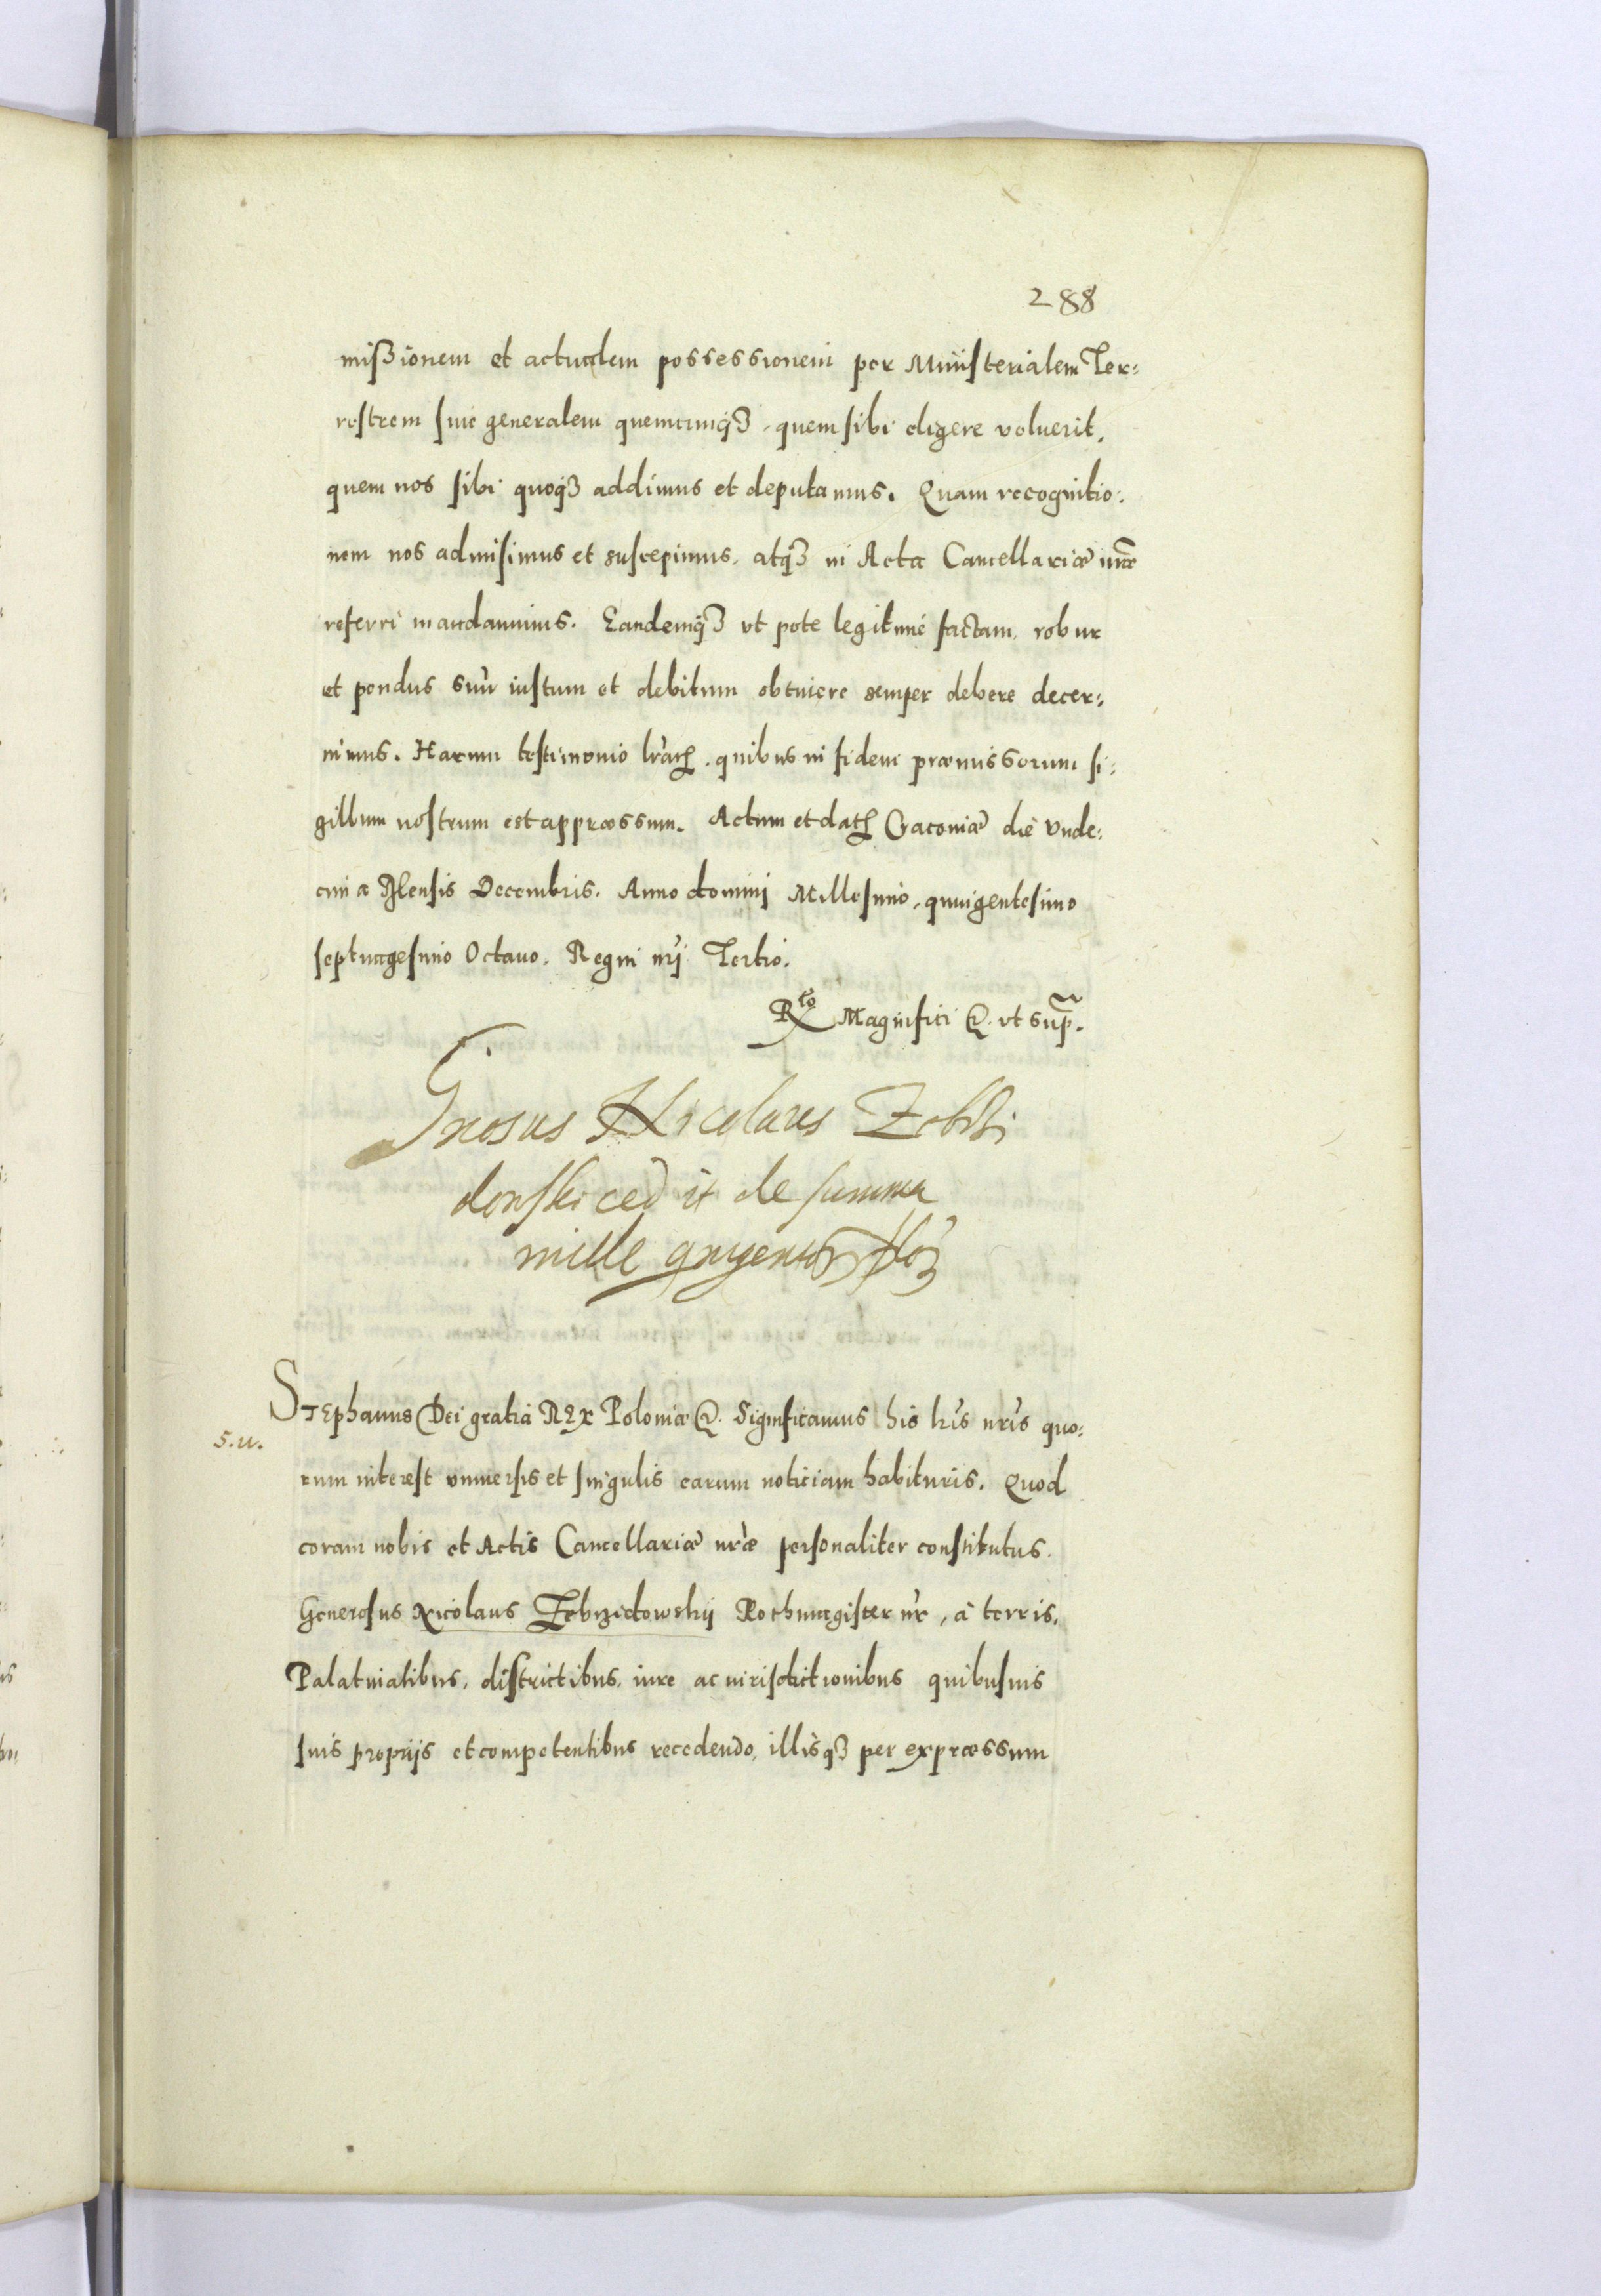 288
mißionem et actualem possessionem per Ministerialem Ter:
restrem siue generalem quemcunqȝ, quem sibi eligere voluerit,
quem nos sibi quoqȝ addimus et deputamus. Quam recognitio:
nem nos admisimus et suscepimus, atqȝ in Acta Cancellariæ nr̃æ
referri mandauimus. Eandemqȝ vt pote legitimè factam, robur
et pondus suũ iustum et debitum obtinere semper debere decer:
nimus. Harum testimonio lr̃arꝝ, quibus in fidem præmissorum si:
gillum nostrum est appræssum. Actum et datꝝ Cracoviæ die Vnde:
cima Mensis Decembris. Anno domini Millesimo, quingentesimo
septuagesimo Octauo. Regni nr̃j Tertio.
Rlo Magnifici &. vt supr̃.
Gnosus Nicolaus Zebrzi
dowski cedit de summa
mille quingentorꝝ floȝ
Stephanus Dei gratia Rex Poloniæ &. Significamus his lr̃is nr̃is quo:
s.u.
rum interest vniuersis et singulis earum noticiam habituris. Quod
coram nobis et Actis Cancellariæ nr̃æ personaliter constitutus.
Generosus Nicolaus Zebrzidowskij Rothmagister nr̃, à terris,
Palatinatibus, districtibus, iure ac iurisdictionibus quibusuis
suis proprijs et competentibus recedendo, illisqȝ per expræssum